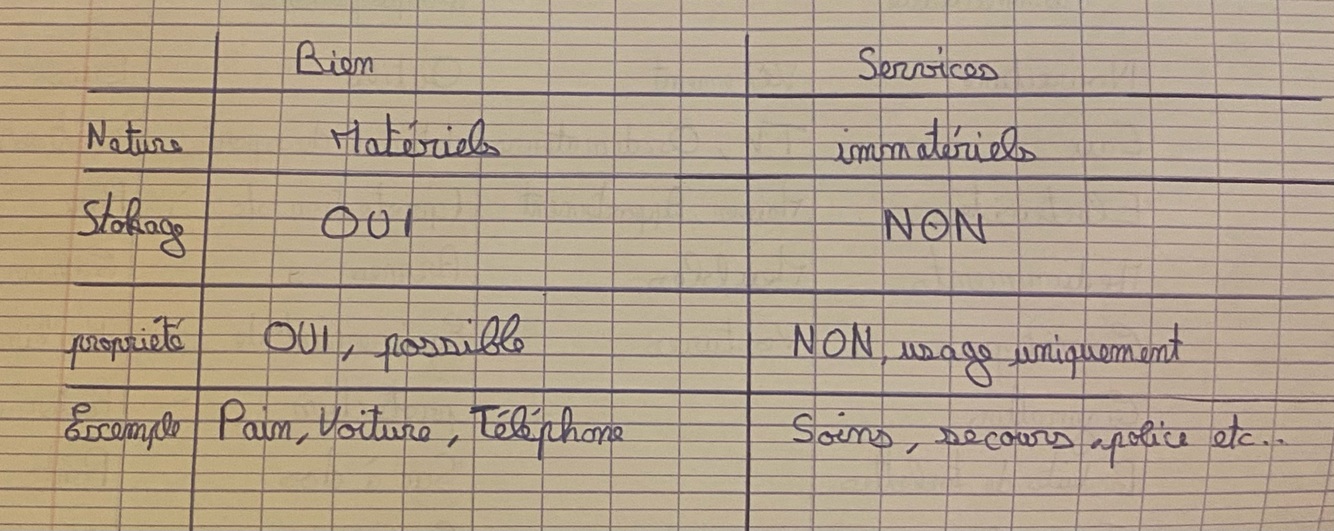 Bien Services
Nature Matériels immatériels
Stokage OUI NON
propriété OUI, possible NON, usage uniquement
Exemple Pain, Voiture, Téléphone Soins, secours, police etc..